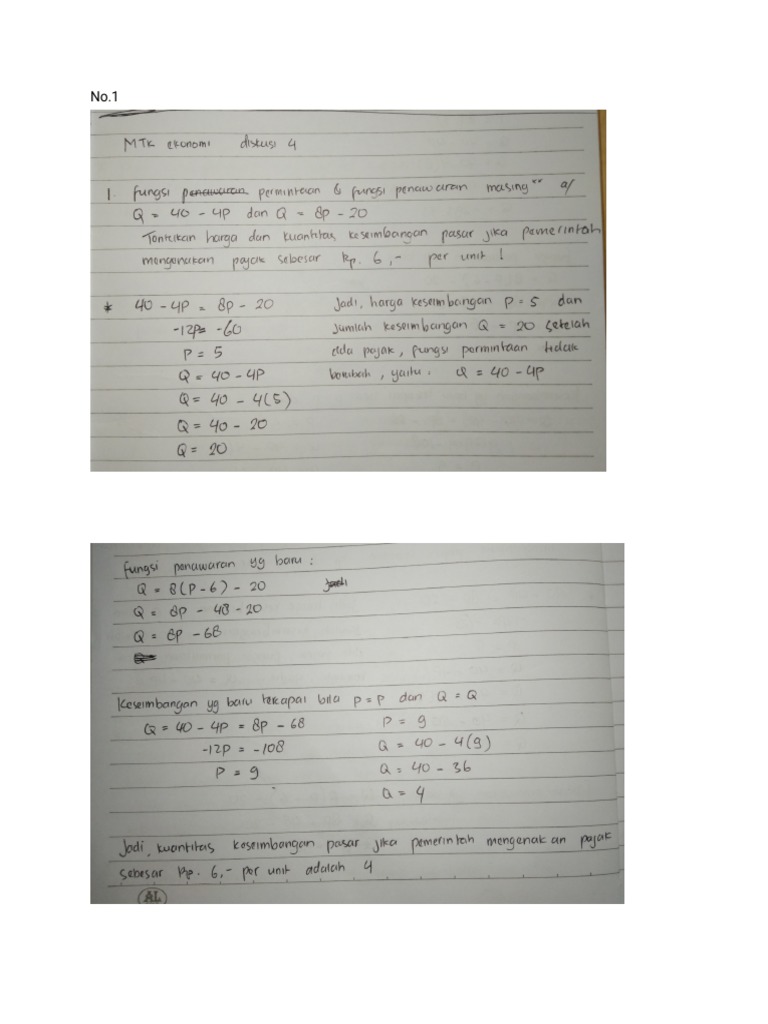 No.1
MTK ekonomi diskusi 4
1. fungsi penawaran permintaan & fungsi penawaran masing" a/
Q = 40 - 4P dan Q = 8p - 20
Tentukan harga dan kuantitas keseimbangan pasar jika pemerintah
mengenakan pajak sebesar Rp. 6,- per unit !
* 40 - 4P = 8p - 20
-12p = -60
P = 5
Q = 40 - 4P
Q = 40 - 4(5)
Q = 40 - 20
Q = 20
Jadi, harga keseimbangan P = 5 dan
Jumlah keseimbangan Q = 20 setelah
ada pajak, fungsi permintaan tidak
berubah, yaitu : Q = 40 - 4P
fungsi penawaran yg baru :
Q = 8(P-6) - 20
Q = 8p - 48 - 20
Q = 8p - 68
Keseimbangan yg baru tercapai bila P = P dan Q = Q
Q = 40 - 4P = 8p - 68
-12p = -108
P = 9
P = 9
Q = 40 - 4(9)
Q = 40 - 36
Q = 4
Jadi, kuantitas keseimbangan pasar jika pemerintah mengenakan pajak
sebesar Rp. 6,- per unit adalah 4
AL